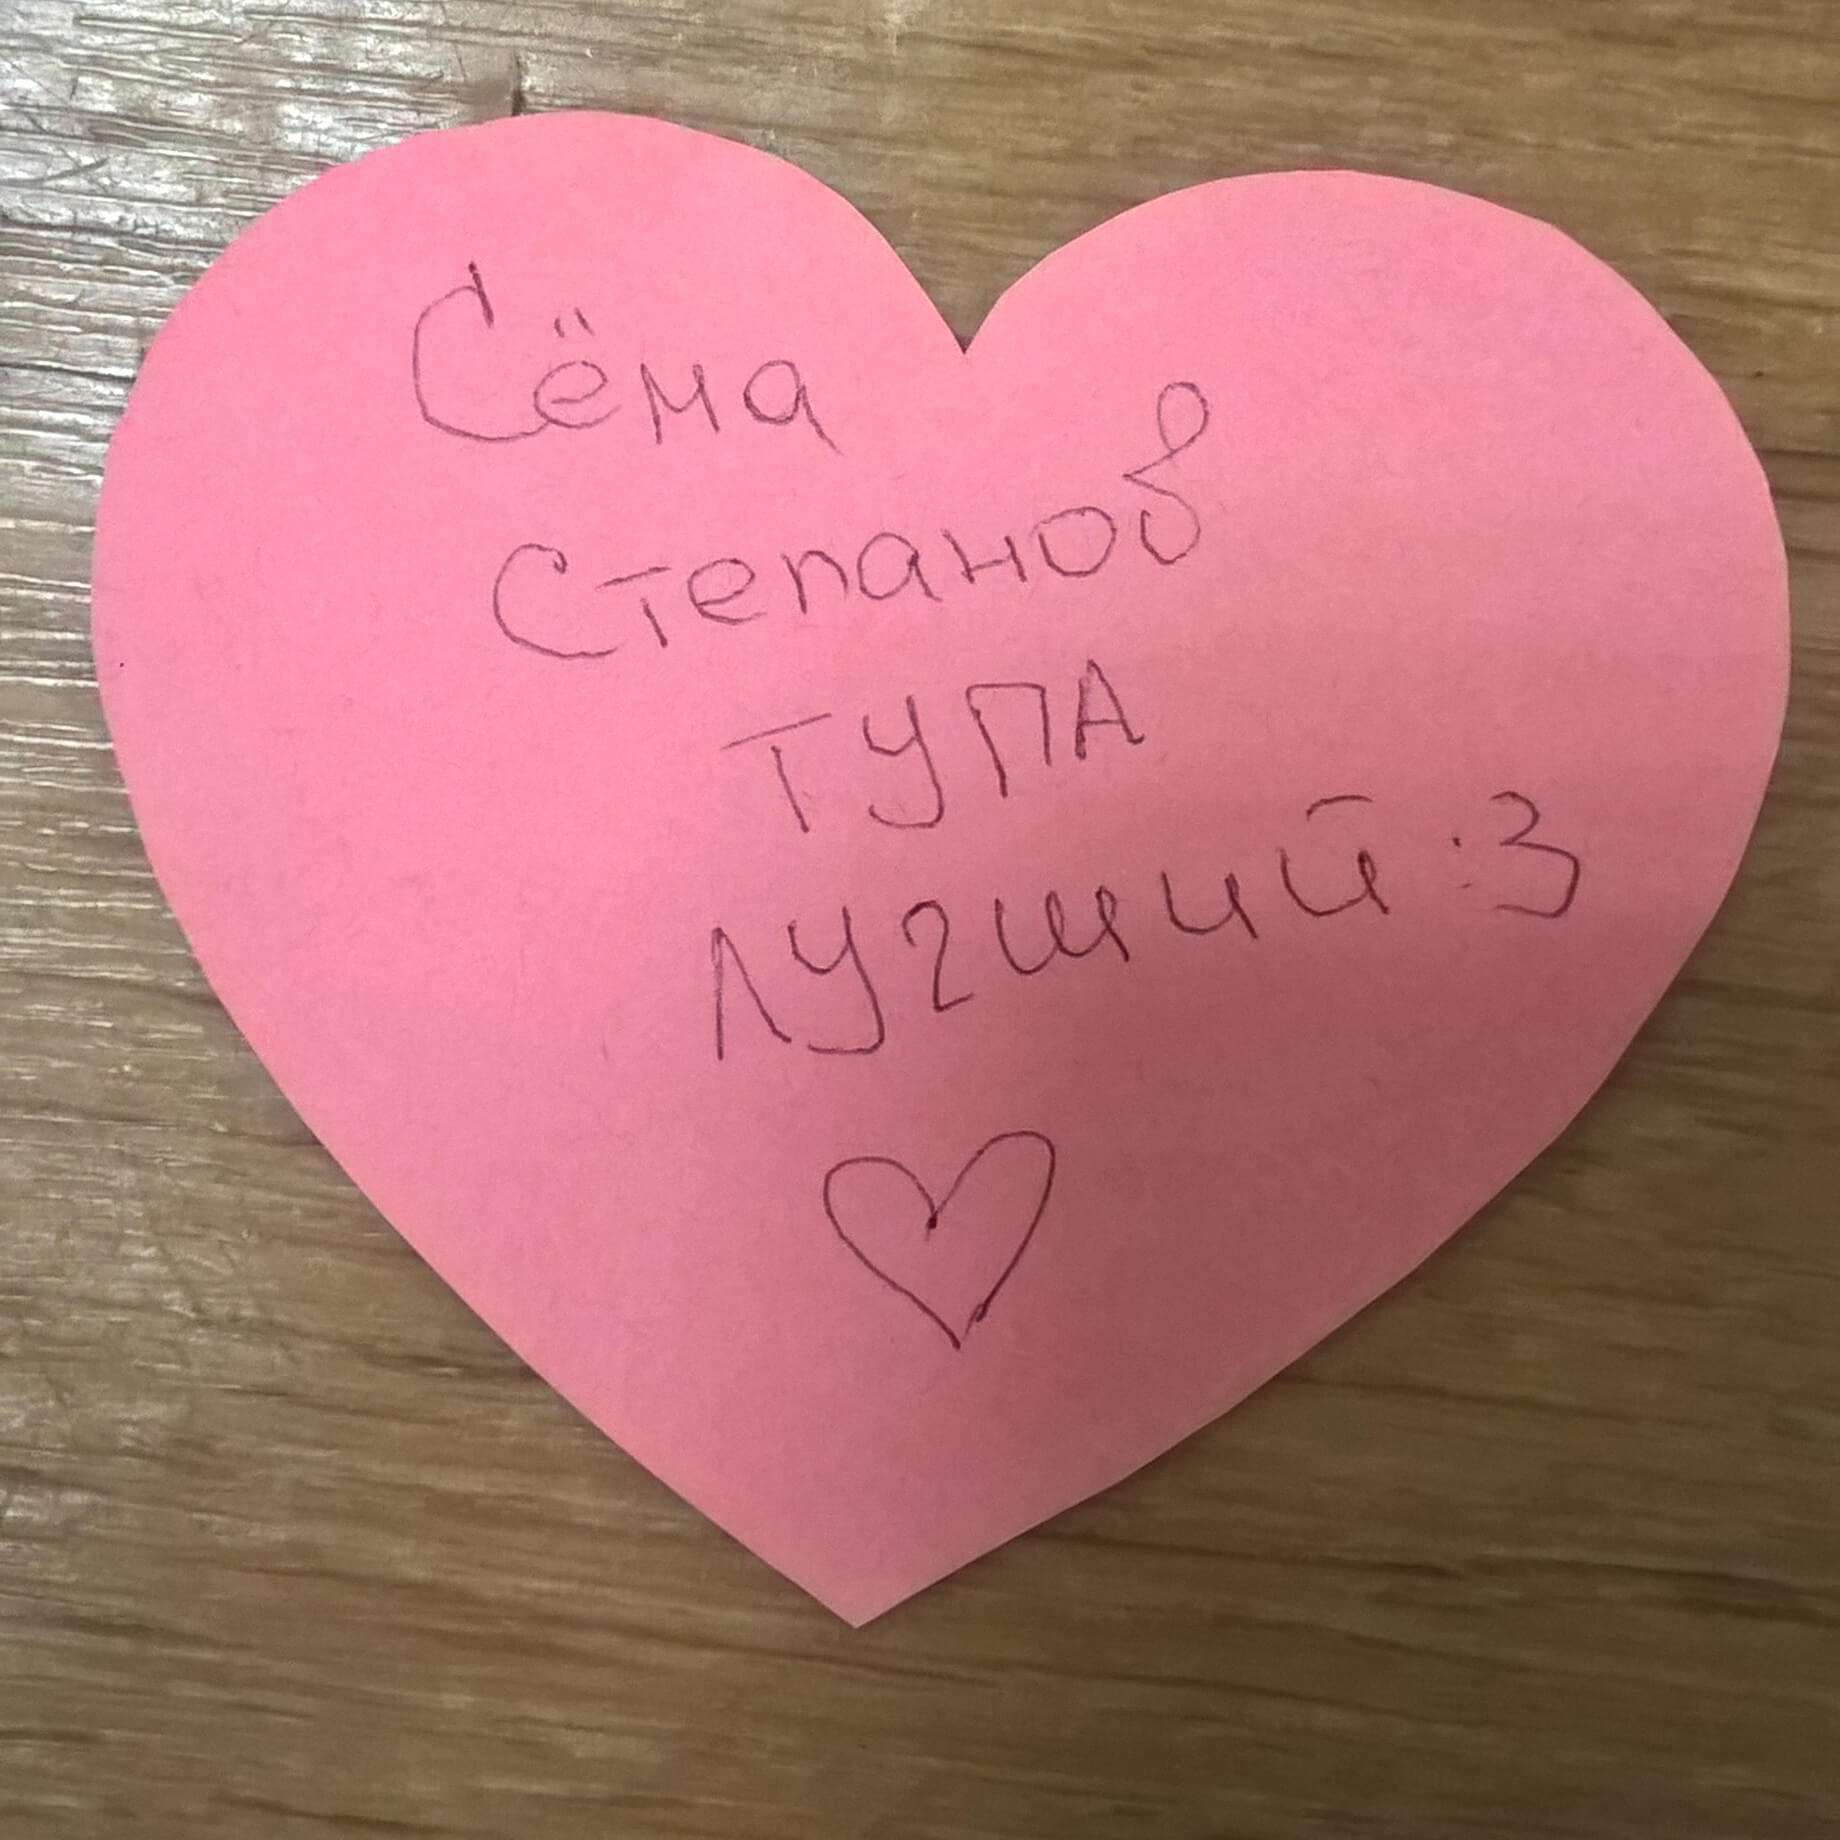 Сёма
Степанов
ТУПА
лучший :3